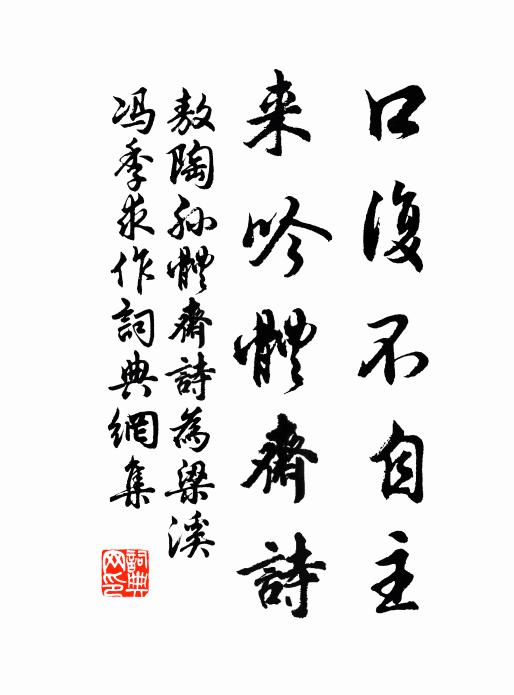 口復不自主
来吟體齋詩
敖陶孙體齋詩為梁溪
冯季求作詞典網集
詞典网印